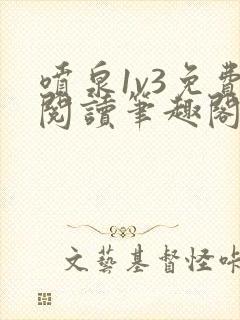 噴泉1v3免費
閱讀筆趣閣
文藝基督怪咔